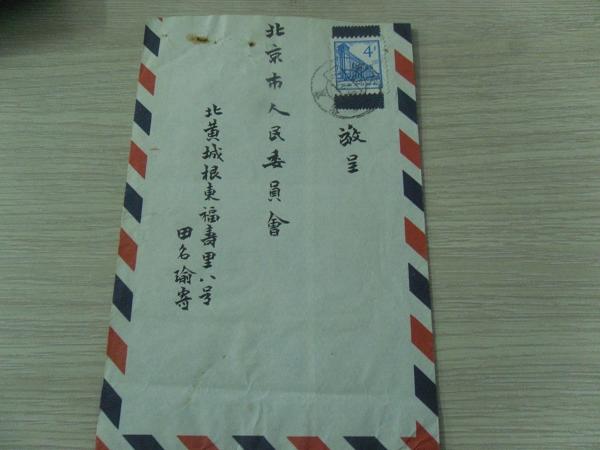 敬呈
北京市人民委員會
北黃城根東福壽里八号
田名瑜寄
4分